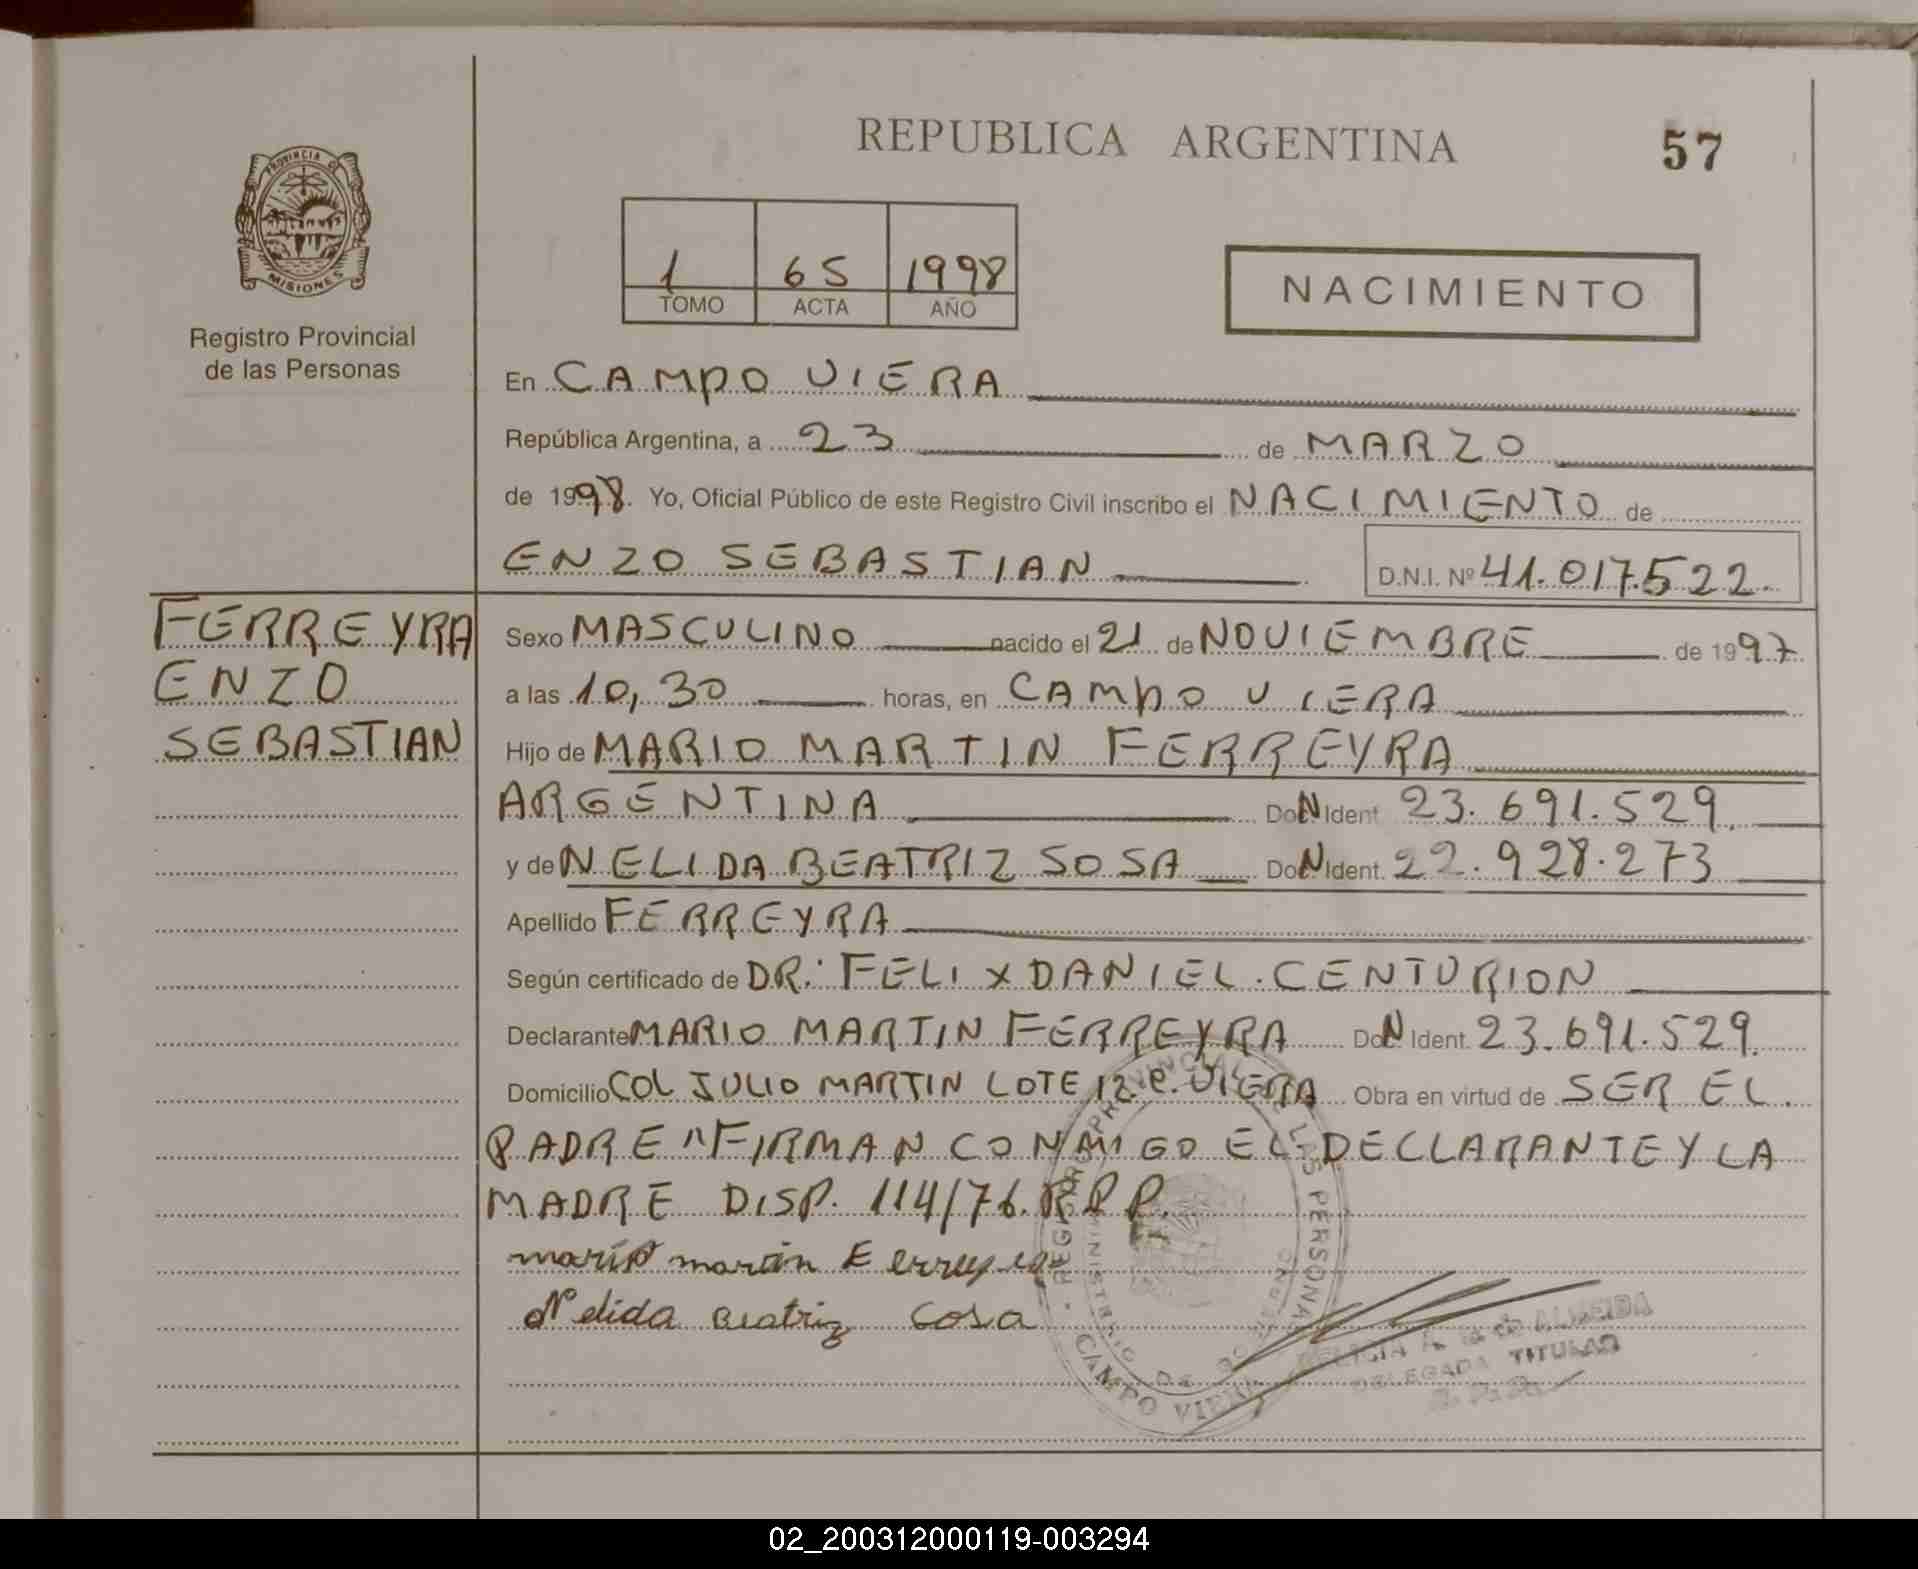 REPUBLICA ARGENTINA
57
PROVINCIA DE
MISIONES
Registro Provincial
de las Personas
1 65 1998
TOMO ACTA AÑO
NACIMIENTO
En CAMPO VIERA
República Argentina, a 23 de MARZO
de 1998. Yo, Oficial Público de este Registro Civil inscribo el NACIMIENTO de
ENZO SEBASTIAN D.N.I. Nº 41.017.522.
FERREYRA
ENZO
SEBASTIAN
Sexo MASCULINO nacido el 21 de NOVIEMBRE de 1997
a las 10,30 horas, en CAMPO VIERA
Hijo de MARIO MARTIN FERREYRA
ARGENTINA Doc N Ident 23.691.529.
y de NELIDA BEATRIZ SOSA Doc N Ident. 22.928.273
Apellido FERREYRA
Según certificado de DR: FELIX DANIEL CENTURION
Declarante MARIO MARTIN FERREYRA Doc N Ident. 23.691.529.
Domicilio COL JULIO MARTIN LOTE 12 C. VIERA Obra en virtud de SER EL
PADRE "FIRMAN CONMIGO EL DECLARANTE Y LA
MADRE DISP. 114/76. R.P.P.
mario martin Ferreyra
Nelida Beatriz Sosa
REGISTRO PROVINCIAL DE LAS PERSONAS
MINISTERIO DE GOBIERNO
CAMPO VIERA
ALMEIDA
DELEGADA TITULAR
02_200312000119-003294